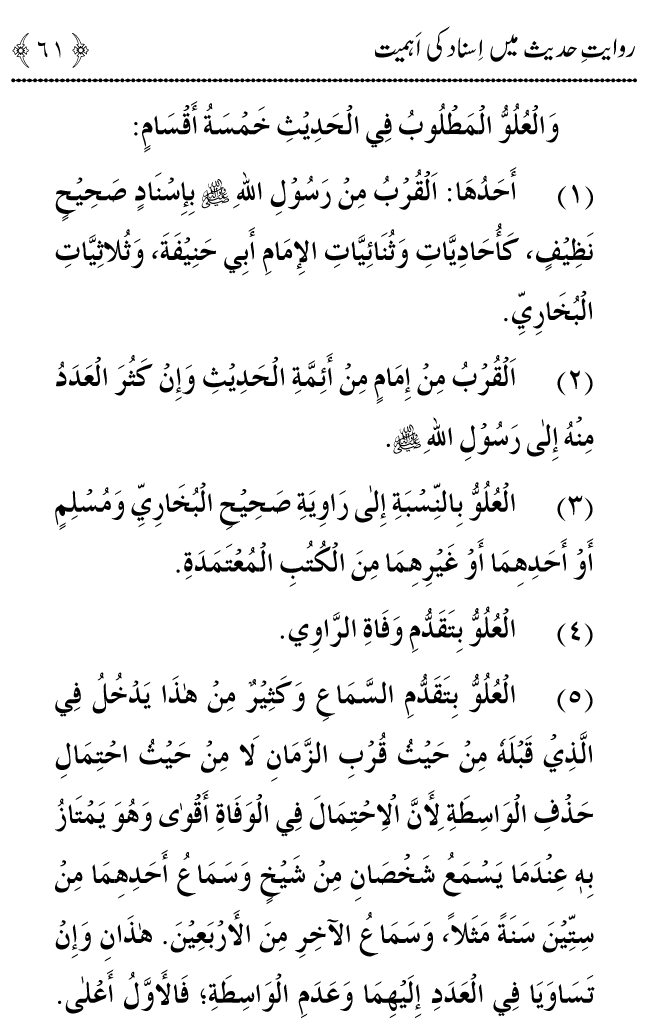 روایتِ حدیث میں اِسناد کی اَہمیت ﴿٦١﴾
وَالْعُلُوُّ الْمَطْلُوبُ فِي الْحَدِيْثِ خَمْسَةُ أَقْسَامٍ:
(١) أَحَدُهَا: اَلْقُرْبُ مِنْ رَسُوْلِ اللهِ ﷺ بِإِسْنَادٍ صَحِيْحٍ
نَظِيْفٍ، كَأُحَادِيَّاتِ وَثُنَائِيَّاتِ الإِمَامِ أَبِي حَنِيْفَةَ، وَثُلاثِيَّاتِ
الْبُخَارِيِّ.
(٢) اَلْقُرْبُ مِنْ إِمَامٍ مِنْ أَئِمَّةِ الْحَدِيْثِ وَإِنْ كَثُرَ الْعَدَدُ
مِنْهُ إِلٰى رَسُوْلِ اللهِ ﷺ.
(٣) الْعُلُوُّ بِالنِّسْبَةِ إِلٰى رَاوِيَةِ صَحِيْحِ الْبُخَارِيِّ وَمُسْلِمٍ
أَوْ أَحَدِهِمَا أَوْ غَيْرِهِمَا مِنَ الْكُتُبِ الْمُعْتَمَدَةِ.
(٤) الْعُلُوُّ بِتَقَدُّمِ وَفَاةِ الرَّاوِي.
(٥) الْعُلُوُّ بِتَقَدُّمِ السَّمَاعِ وَكَثِيْرٌ مِنْ هٰذَا يَدْخُلُ فِي
الَّذِيْ قَبْلَهٗ مِنْ حَيْثُ قُرْبِ الزَّمَانِ لَا مِنْ حَيْثُ احْتِمَالِ
حَذْفِ الْوَاسِطَةِ لِأَنَّ الْاِحْتِمَالَ فِي الْوَفَاةِ أَقْوٰى وَهُوَ يَمْتَازُ
بِهٖ عِنْدَمَا يَسْمَعُ شَخْصَانِ مِنْ شَيْخٍ وَسَمَاعُ أَحَدِهِمَا مِنْ
سِتِّيْنَ سَنَةً مَثَلاً، وَسَمَاعُ الآخِرِ مِنَ الْأَرْبَعِيْنَ. هٰذَانِ وَإِنْ
تَسَاوَيَا فِي الْعَدَدِ إِلَيْهِمَا وَعَدَمِ الْوَاسِطَةِ؛ فَالْأَوَّلُ أَعْلٰى.